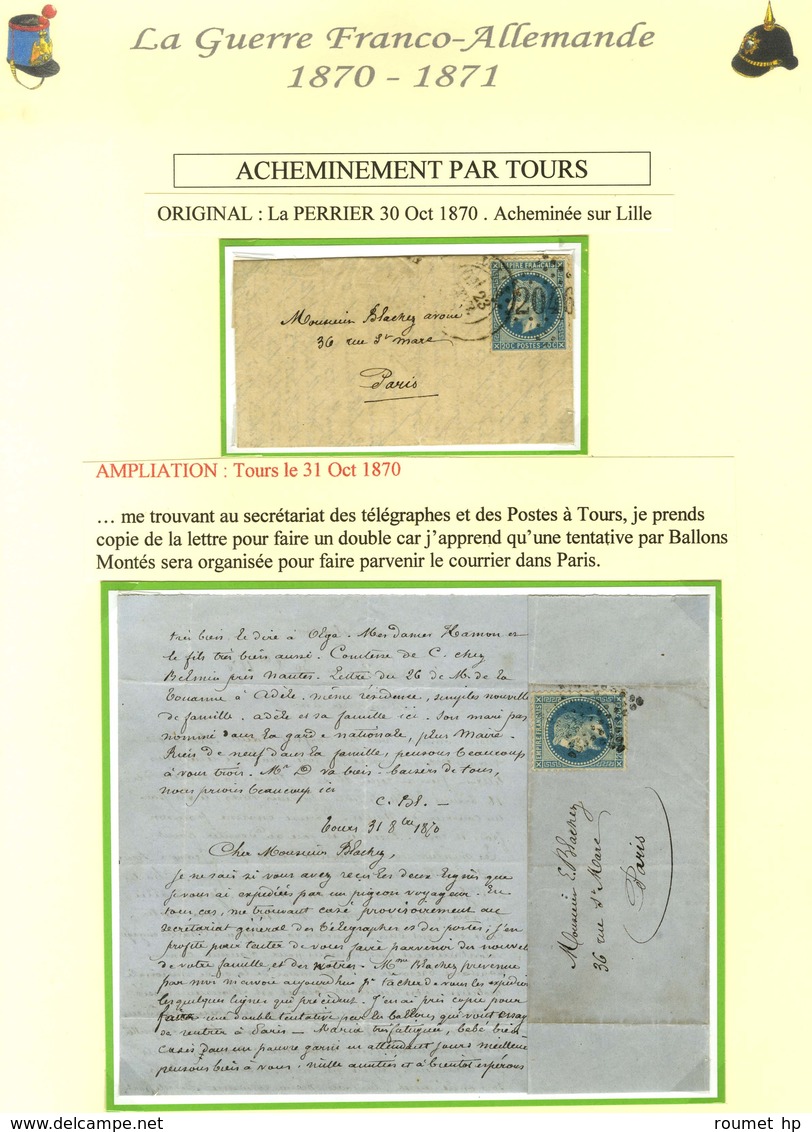 La Guerre Franco-Allemande
1870 - 1871
ACHEMINEMENT PAR TOURS
ORIGINAL : La PERRIER 30 Oct 1870 . Acheminée sur Lille
EMPIRE FRANÇAIS
2046
20C POSTES 20C
Monsieur Blachez avoué
36 rue St marc
Paris
AMPLIATION : Tours le 31 Oct 1870
… me trouvant au secrétariat des télégraphes et des Postes à Tours, je prends
copie de la lettre pour faire un double car j'apprend qu'une tentative par Ballons
Montés sera organisée pour faire parvenir le courrier dans Paris.
très bien le dire à Olga. Mesdames Hamon et
le fils très bien aussi. Comtesse de C. chez
Belmin près Nantes. Lettre du 26 de M. de la
Touanne à Adèle. même résidence, simples nouvelles
de famille. Adèle et sa famille ici. Son mari pas
nommé dans la garde nationale, plus Maire.
Rien de neuf dans la famille, pensons beaucoup
à vous trois. Mr D va bien. baisers de tous,
nous prions beaucoup ici
C. Bl. —
Tours 31 8bre 1870
Cher Monsieur Blachez,
Je ne sais si vous avez reçu les deux lignes que
je vous ai expédiées par un pigeon voyageur. En
tous cas, me trouvant casé provisoirement au
secrétariat général des Télégraphes et des postes, j'en
profite pour tenter de vous faire parvenir des nouvelles
de votre famille, et des nôtres. Mme Blachez prévenue
par moi m'envoie aujourd'hui pr tâcher de vous les expédier
les quelques lignes qui précèdent. J'en ai pris copie pour
faire une double tentative par les ballons qui vont essayer
de rentrer à Paris — Maria très fatiguée, bébé bien
casés dans un pauvre garni en attendant jours meilleurs
pensons bien à vous, mille amitiés et à bientôt espérons
EMPIRE FRANÇAIS
Monsieur E. Blachez
36 rue St Marc
Paris
roumet hp